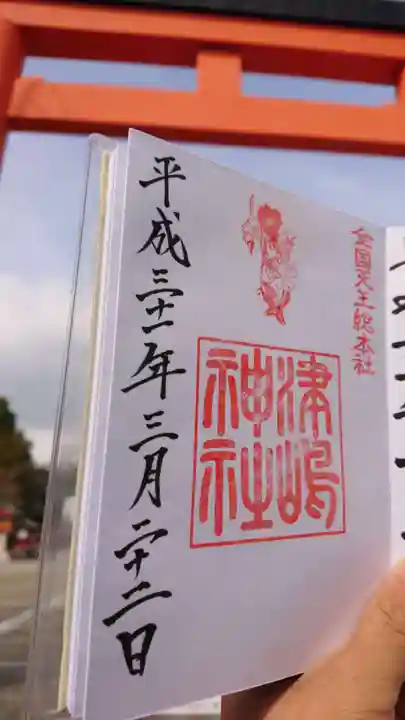 全国天王総本社
津嶋
神社
平成三十一年三月二十二日